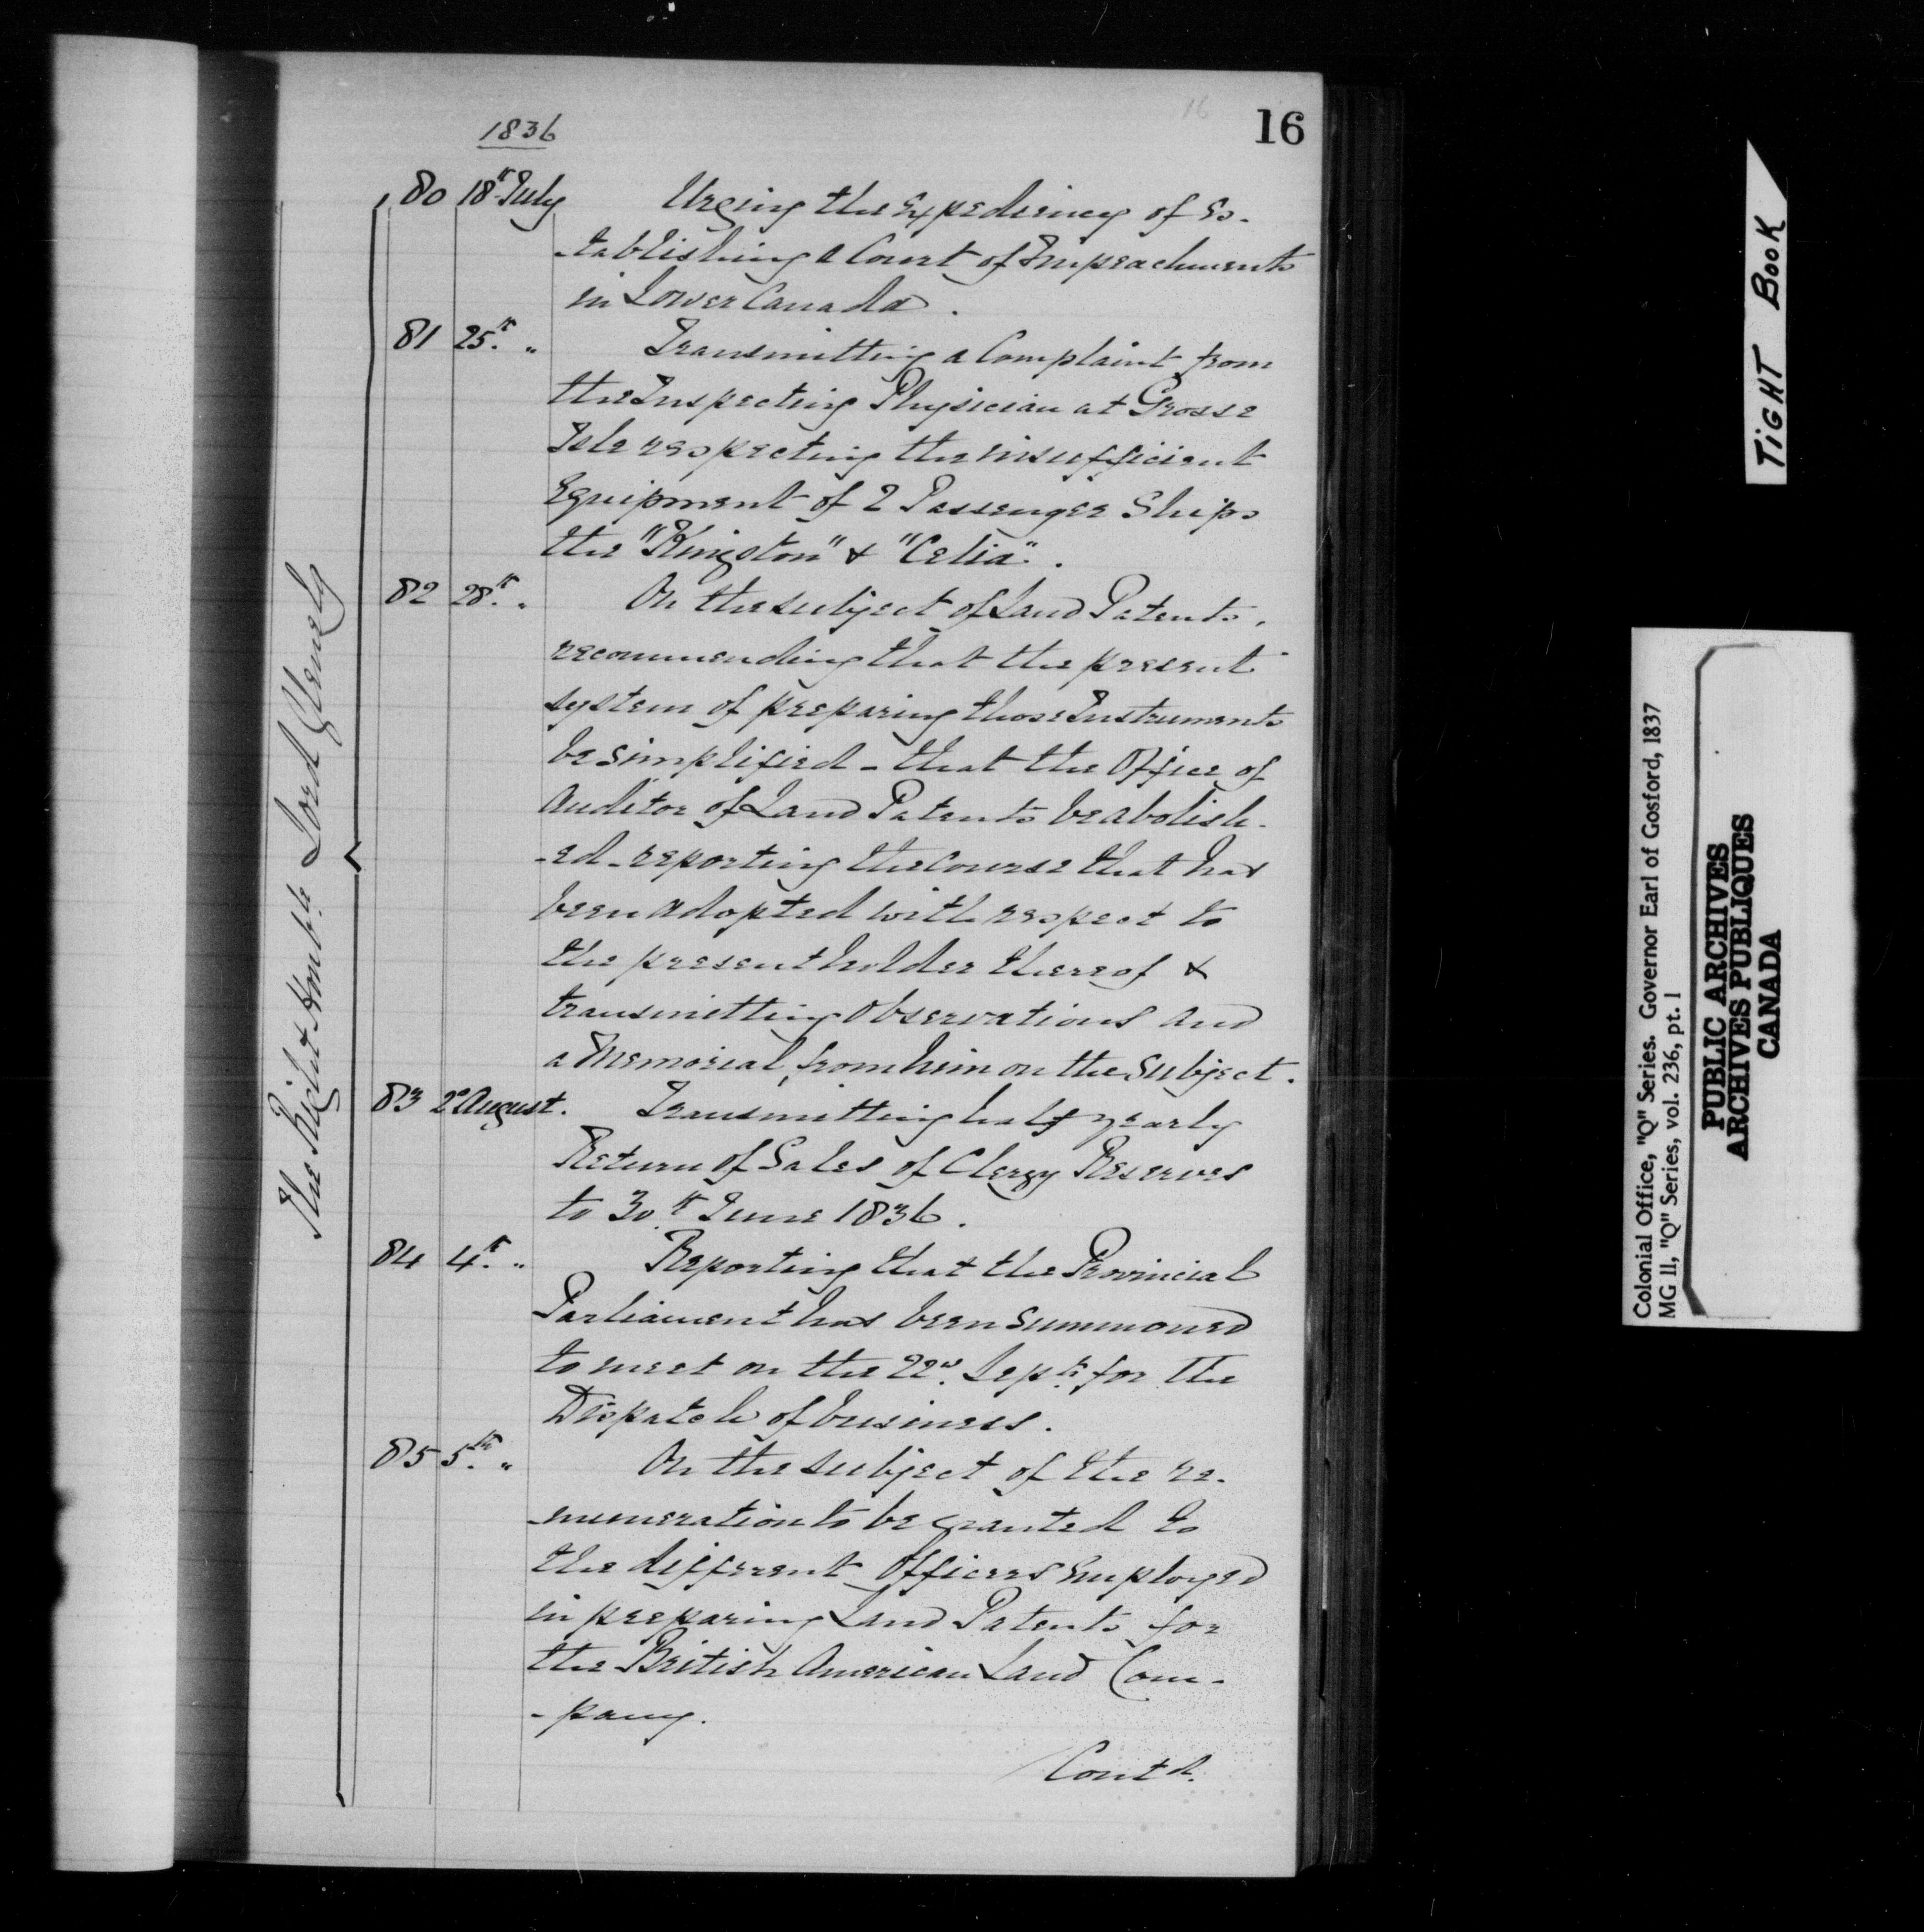 16
16
1836
The Right Honble Lord Glenelg
80 18th July Urging the Expediency of Es-
-tablishing a Court of Impeachments
in Lower Canada.
81 25th " Transmitting a Complaint from
the Inspecting Physician at Grosse
Isle respecting the insufficient
Equipment of 2 Passenger Ships
the "Kingston" & "Celia".
82 28th " On the subject of Land Patents,
recommending that the present
system of preparing those Instruments
be simplified - that the Office of
Auditor of Land Patents be abolish-
-ed - reporting the course that has
been adopted with respect to
the present holder thereof &
transmitting Observations and
a Memorial from him on the subject.
83 2d August. Transmitting half yearly
Return of Sales of Clergy Reserves
to 30th June 1836.
84 4th " Reporting that the Provincial
Parliament has been summoned
to meet on the 22d Septr for the
Dispatch of business.
85 5th " On the subject of the re-
-muneration to be granted to
the different Officers Employed
in preparing Land Patents for
the British American Land Com-
-pany.
Contd.
TIGHT BOOK
Colonial Office, "Q" Series. Governor Earl of Gosford, 1837
MG 11, "Q" Series, vol. 236, pt. 1
PUBLIC ARCHIVES
ARCHIVES PUBLIQUES
CANADA